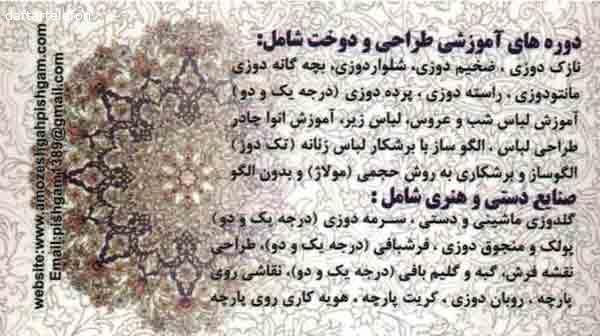 daftartelefon
دوره های آموزشی طراحی و دوخت شامل:
نازک دوزی ، ضخیم دوزی، شلواردوزی، بچه گانه دوزی
مانتودوزی ، راسته دوزی ، پرده دوزی (درجه یک و دو)
آموزش لباس شب و عروس، لباس زیر، آموزش انوا چادر
طراحی لباس ، الگو ساز با برشکار لباس زنانه (تک دوز)
الگوساز و برشکاری به روش حجمی (مولاژ) و بدون الگو
صنایع دستی و هنری شامل :
گلدوزی ماشینی و دستی ، سرمه دوزی (درجه یک و دو)
پولک و منجوق دوزی ، فرشبافی (درجه یک و دو)، طراحی
نقشه فرش، گبه و گلیم بافی (درجه یک و دو)، نقاشی روی
پارچه ، روبان دوزی ، کریت پارچه ، هویه کاری روی پارچه
website:www.amozeshgahpishgam.com
Email:pishgam1389@gmail.com